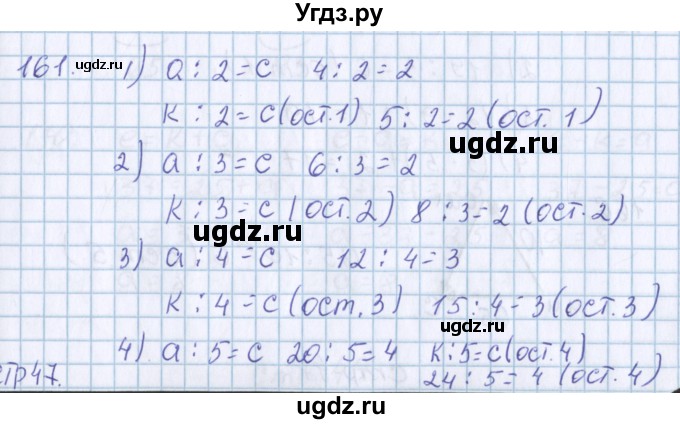 Угдз.ру
161. 1) а : 2 = с 4 : 2 = 2
ugdz.ru
к : 2 = с (ост. 1) 5 : 2 = 2 (ост. 1)
ugdz.ru
2) а : 3 = с 6 : 3 = 2
к : 3 = с (ост. 2) 8 : 3 = 2 (ост. 2)
ugdz.ru
3) а : 4 = с 12 : 4 = 3
к : 4 = с (ост. 3) 15 : 4 = 3 (ост. 3)
ugdz.ru
4) а : 5 = с 20 : 5 = 4 к : 5 = с (ост. 4)
стр 47. 24 : 5 = 4 (ост. 4)
ugdz.ru
ugdz.ru